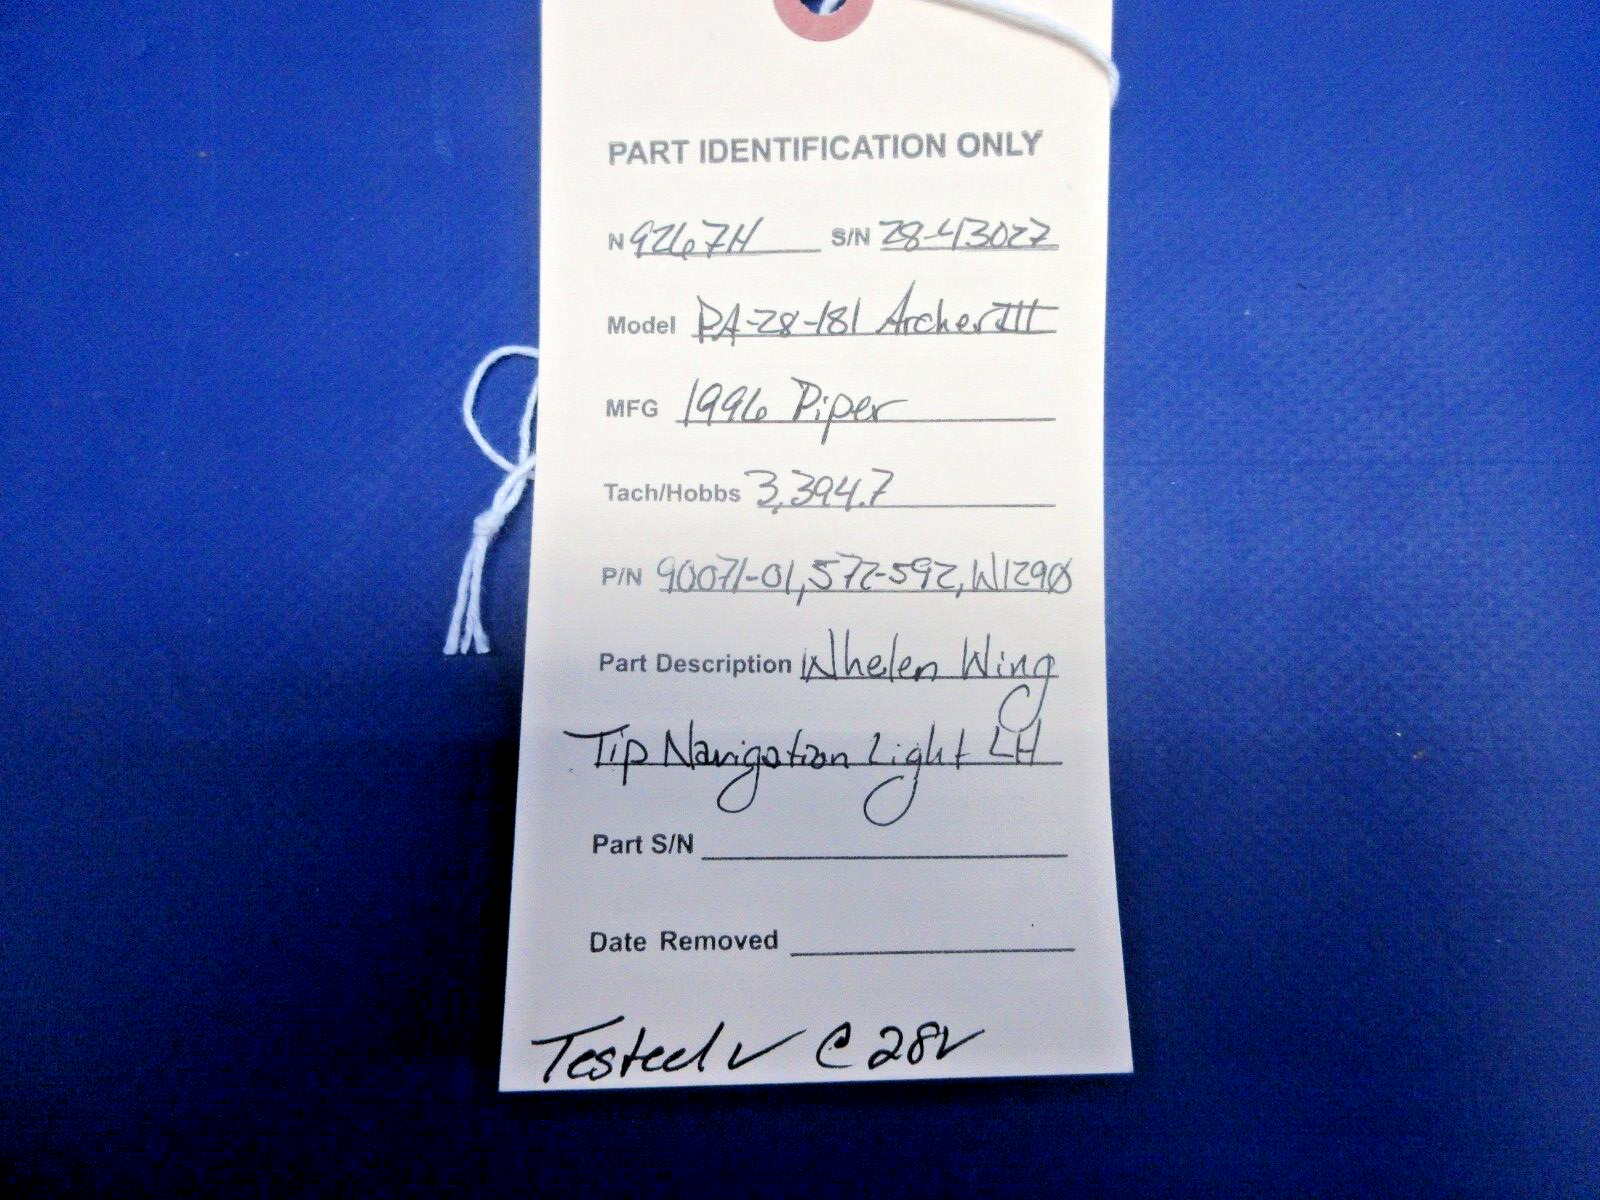 PART IDENTIFICATION ONLY
N 9267H S/N 28-43027
Model PA-28-181 Archer III
MFG 1996 Piper
Tach/Hobbs 3,394.7
P/N 90071-01, 572-592, W1290
Part Description Whelen Wing
Tip Navigation Light LH
Part S/N
Date Removed
Tested ✓ @ 28V